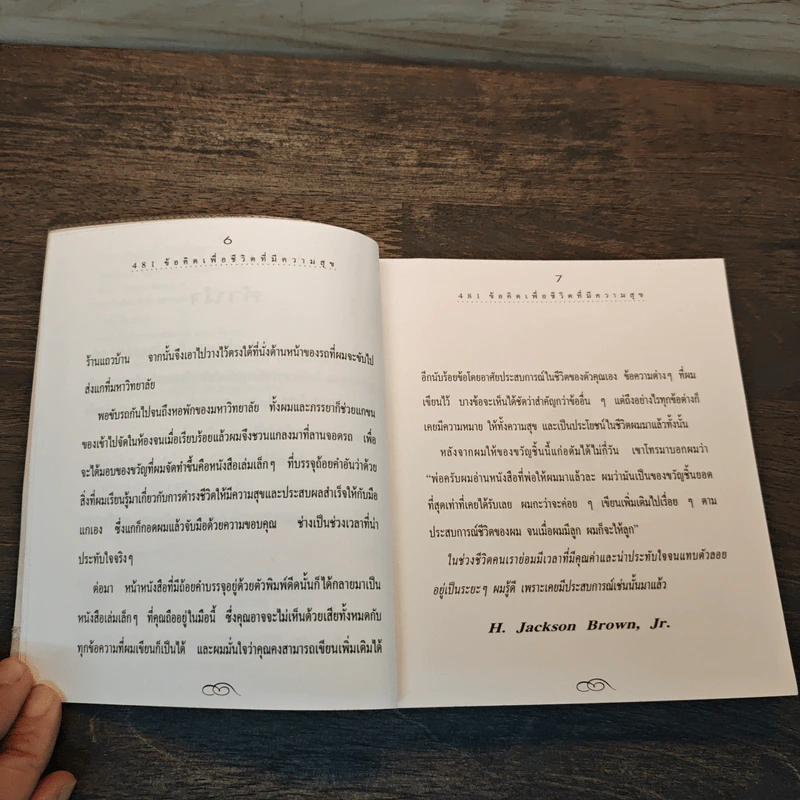 6
481 ข้อคิดเพื่อชีวิตที่มีความสุข
ร้านแถวบ้าน จากนั้นจึงเอาไปวางไว้ตรงใต้ที่นั่งด้านหน้าของรถที่ผมจะขับไป
ส่งแกที่มหาวิทยาลัย
พอขับรถกันไปจนถึงหอพักของมหาวิทยาลัย ทั้งผมและภรรยาก็ช่วยแกขน
ของเข้าไปจัดในห้องจนเมื่อเรียบร้อยแล้วผมจึงชวนแกลงมาที่ลานจอดรถ เพื่อ
จะได้มอบของขวัญที่ผมจัดทำขึ้นคือหนังสือเล่มเล็กๆ ที่บรรจุถ้อยคำอันว่าด้วย
สิ่งที่ผมเรียนรู้มาเกี่ยวกับการดำรงชีวิตให้มีความสุขและประสบผลสำเร็จให้กับมือ
แกเอง ซึ่งแกก็กอดผมแล้วจับมือด้วยความขอบคุณ ช่างเป็นช่วงเวลาที่น่า
ประทับใจจริงๆ
ต่อมา หน้าหนังสือที่มีถ้อยคำบรรจุอยู่ด้วยตัวพิมพ์ดีดนั้นก็ได้กลายมาเป็น
หนังสือเล่มเล็กๆ ที่คุณถืออยู่ในมือนี้ ซึ่งคุณอาจจะไม่เห็นด้วยเสียทั้งหมดกับ
ทุกข้อความที่ผมเขียนก็เป็นได้ และผมมั่นใจว่าคุณคงสามารถเขียนเพิ่มเติมได้
7
481 ข้อคิดเพื่อชีวิตที่มีความสุข
อีกนับร้อยข้อโดยอาศัยประสบการณ์ในชีวิตของตัวคุณเอง ข้อความต่างๆ ที่ผม
เขียนไว้ บางข้อจะเห็นได้ชัดว่าสำคัญกว่าข้ออื่น ๆ แต่ถึงอย่างไรทุกข้อต่างก็
เคยมีความหมาย ให้ทั้งความสุข และเป็นประโยชน์ในชีวิตผมมาแล้วทั้งนั้น
หลังจากผมให้ของขวัญชิ้นนี้แก่อดัมได้ไม่กี่วัน เขาโทรมาบอกผมว่า
“พ่อครับผมอ่านหนังสือที่พ่อให้ผมมาแล้วละ ผมว่ามันเป็นของขวัญชิ้นยอด
ที่สุดเท่าที่เคยได้รับเลย ผมกะว่าจะค่อย ๆ เขียนเพิ่มเติมไปเรื่อย ๆ ตาม
ประสบการณ์ชีวิตของผม จนเมื่อผมมีลูก ผมก็จะให้ลูก”
ในช่วงชีวิตคนเราย่อมมีเวลาที่มีคุณค่าและน่าประทับใจจนแทบตัวลอย
อยู่เป็นระยะๆ ผมรู้ดี เพราะเคยมีประสบการณ์เช่นนั้นมาแล้ว
H. Jackson Brown, Jr.